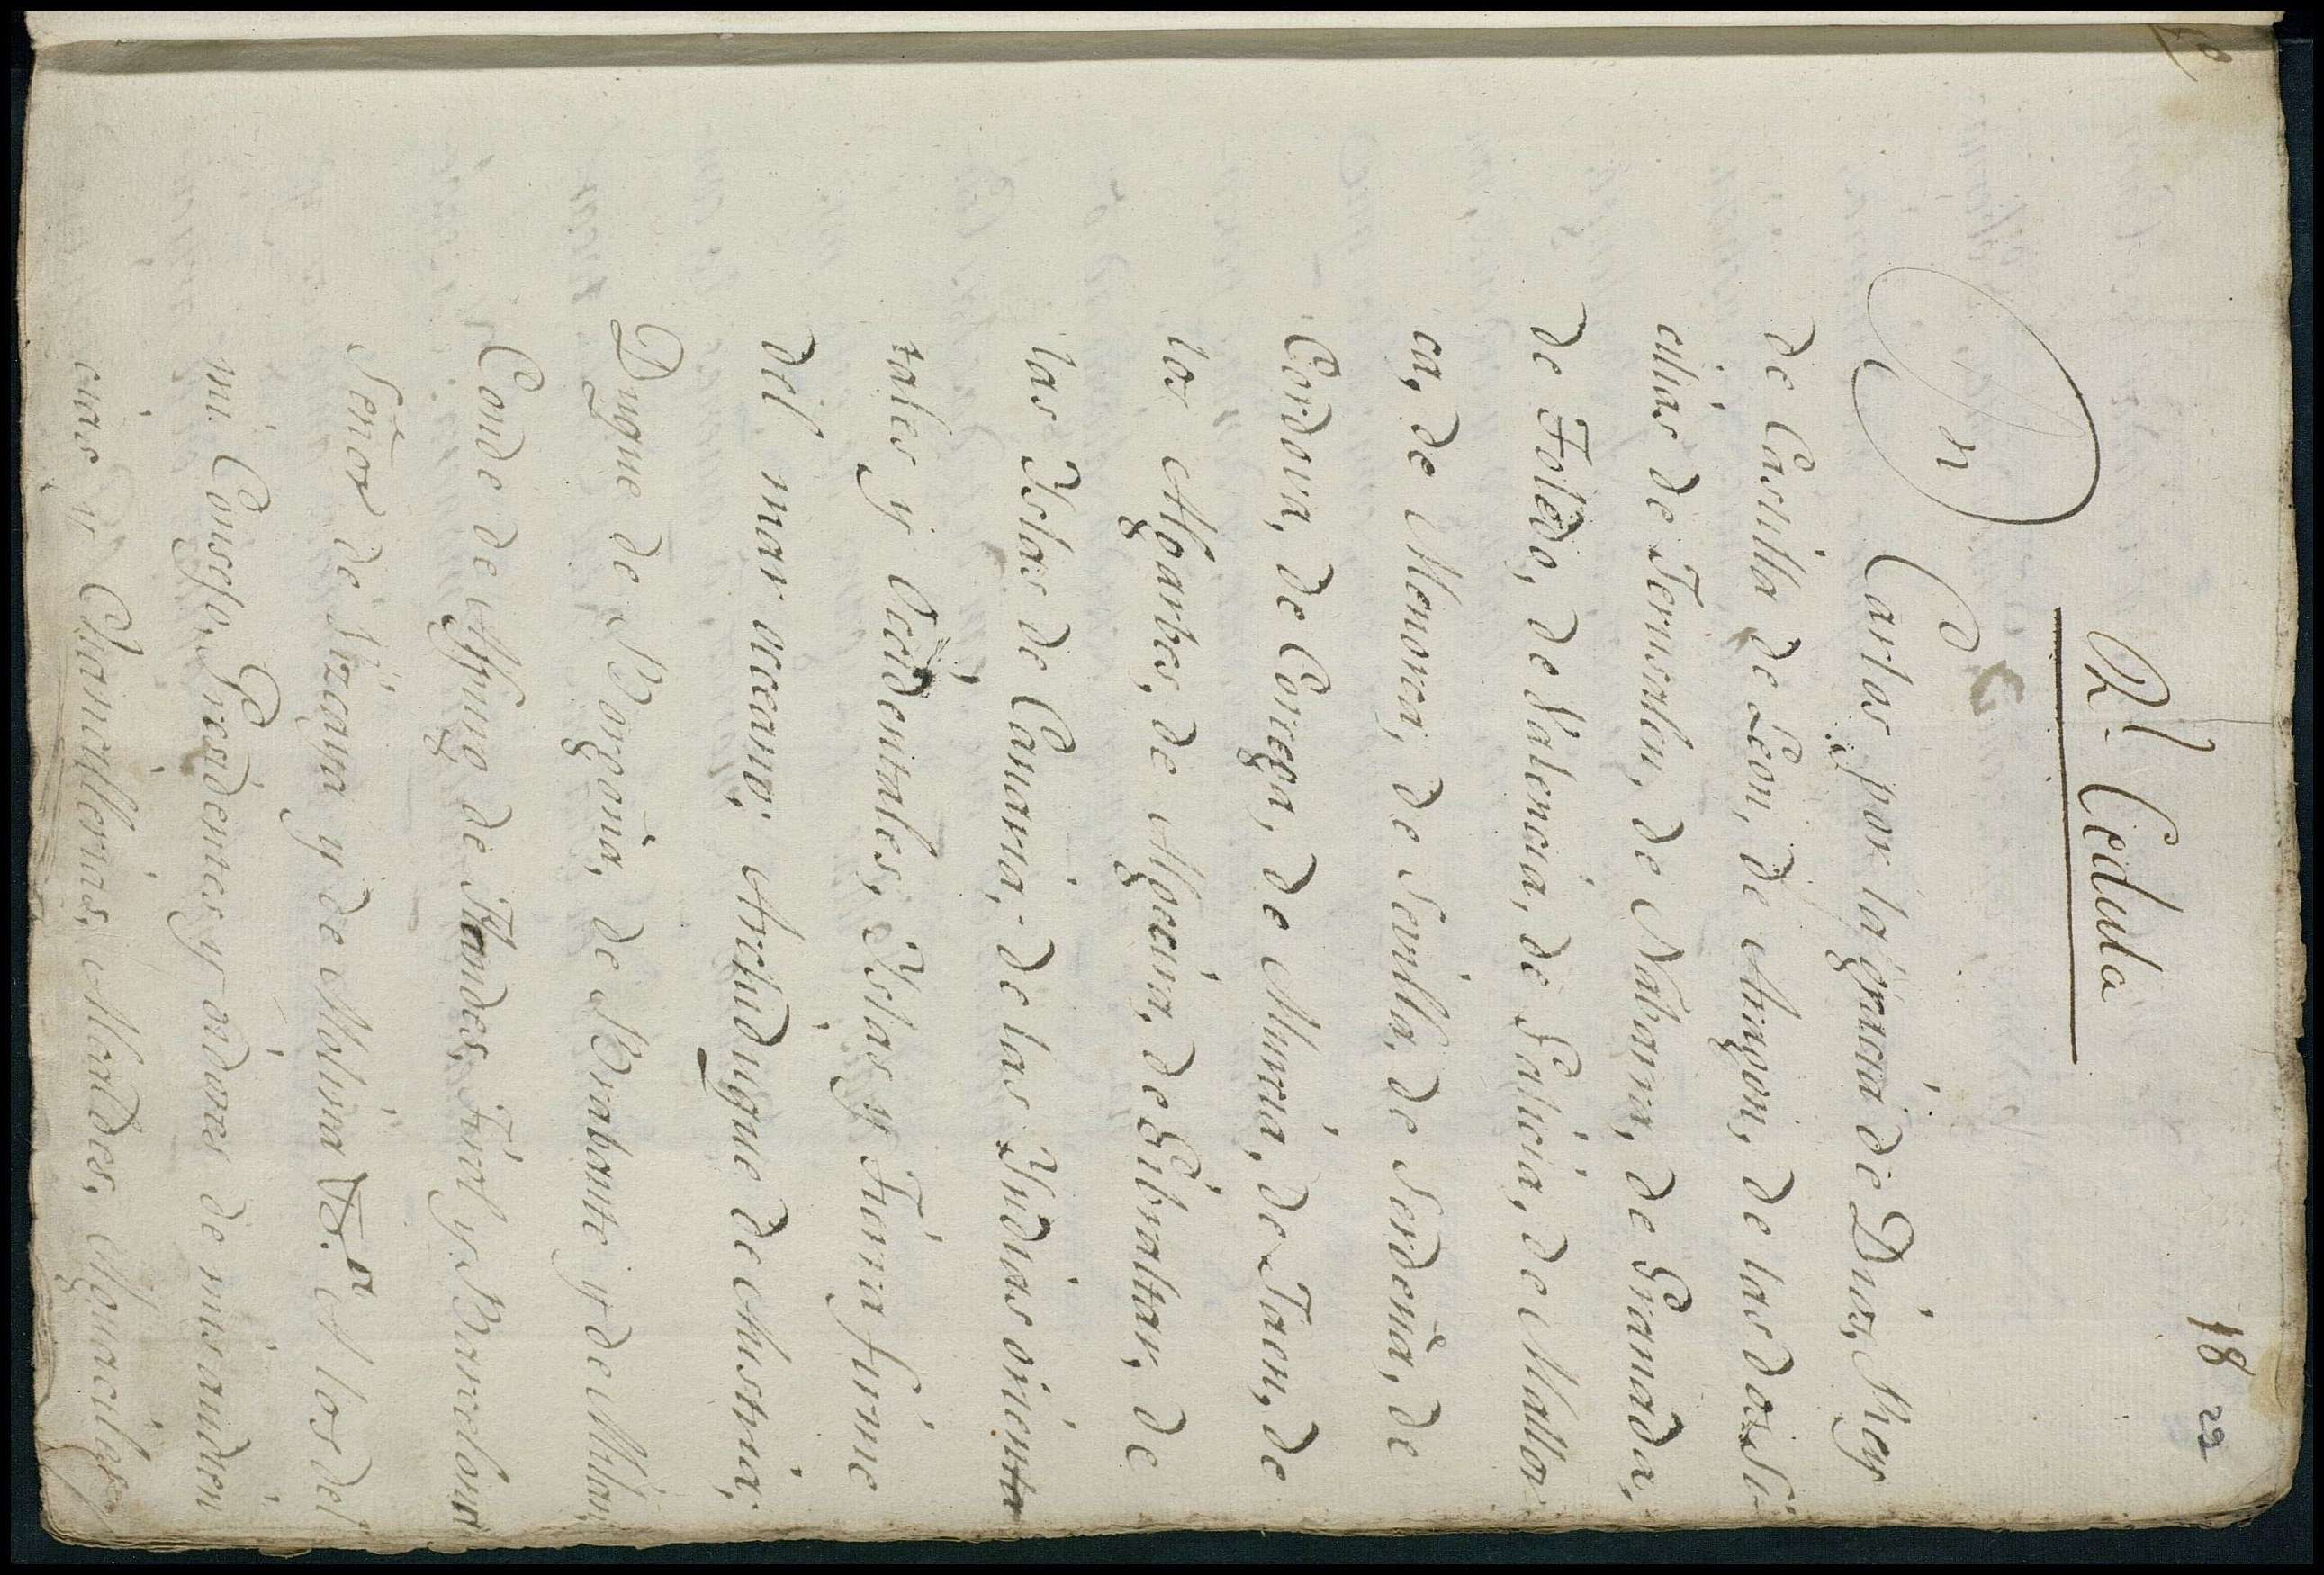 18 22
Rl. Cedula
Dn
Carlos, por la gracia de Dios, Rey
de Castilla de Leon, de Aragon, de las dos Si-
cilias de Jerusalen, de Nabarra, de Granada,
de Toledo, de Valencia, de Galicia, de Mallor-
ca, de Menorca, de Sevilla, de Serdeña, de
Cordova, de Corcega, de Murcia, de Jaen, de
los Algarbes, de Algecira, de Gibraltar, de
las Yslas de Canaria, de las Yndias orienta
tales y Occidentales, Yslas y Tierra firme
del mar occeano; Archiduque de Austria;
Duque de Borgoña, de Brabante y de Milan,
Conde de Aspurg de Flandes, Tirol y Barcelona
Señor de Vizcaya y de Molina &.a A los del
mi Consejo, Presidentes y oidores de mis audien
cias y Chancillerias, Alcaldes, Alguaciles